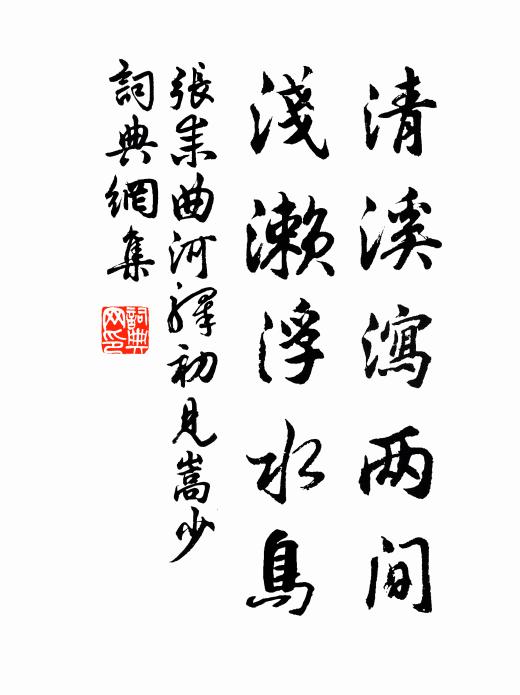 清溪瀉两间
淺濑浮水鳥
張耒曲河驛初見嵩少
詞典網集
詞典网印